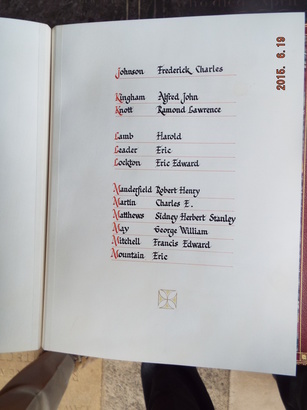 2015. 6. 19
Johnson Frederick Charles
Kingham Alfred John
Knott Ramond Lawrence
Lamb Harold
Leader Eric
Lockton Eric Edward
Manderfield Robert Henry
Martin Charles E.
Matthews Sidney Herbert Stanley
May George William
Mitchell Francis Edward
Mountain Eric